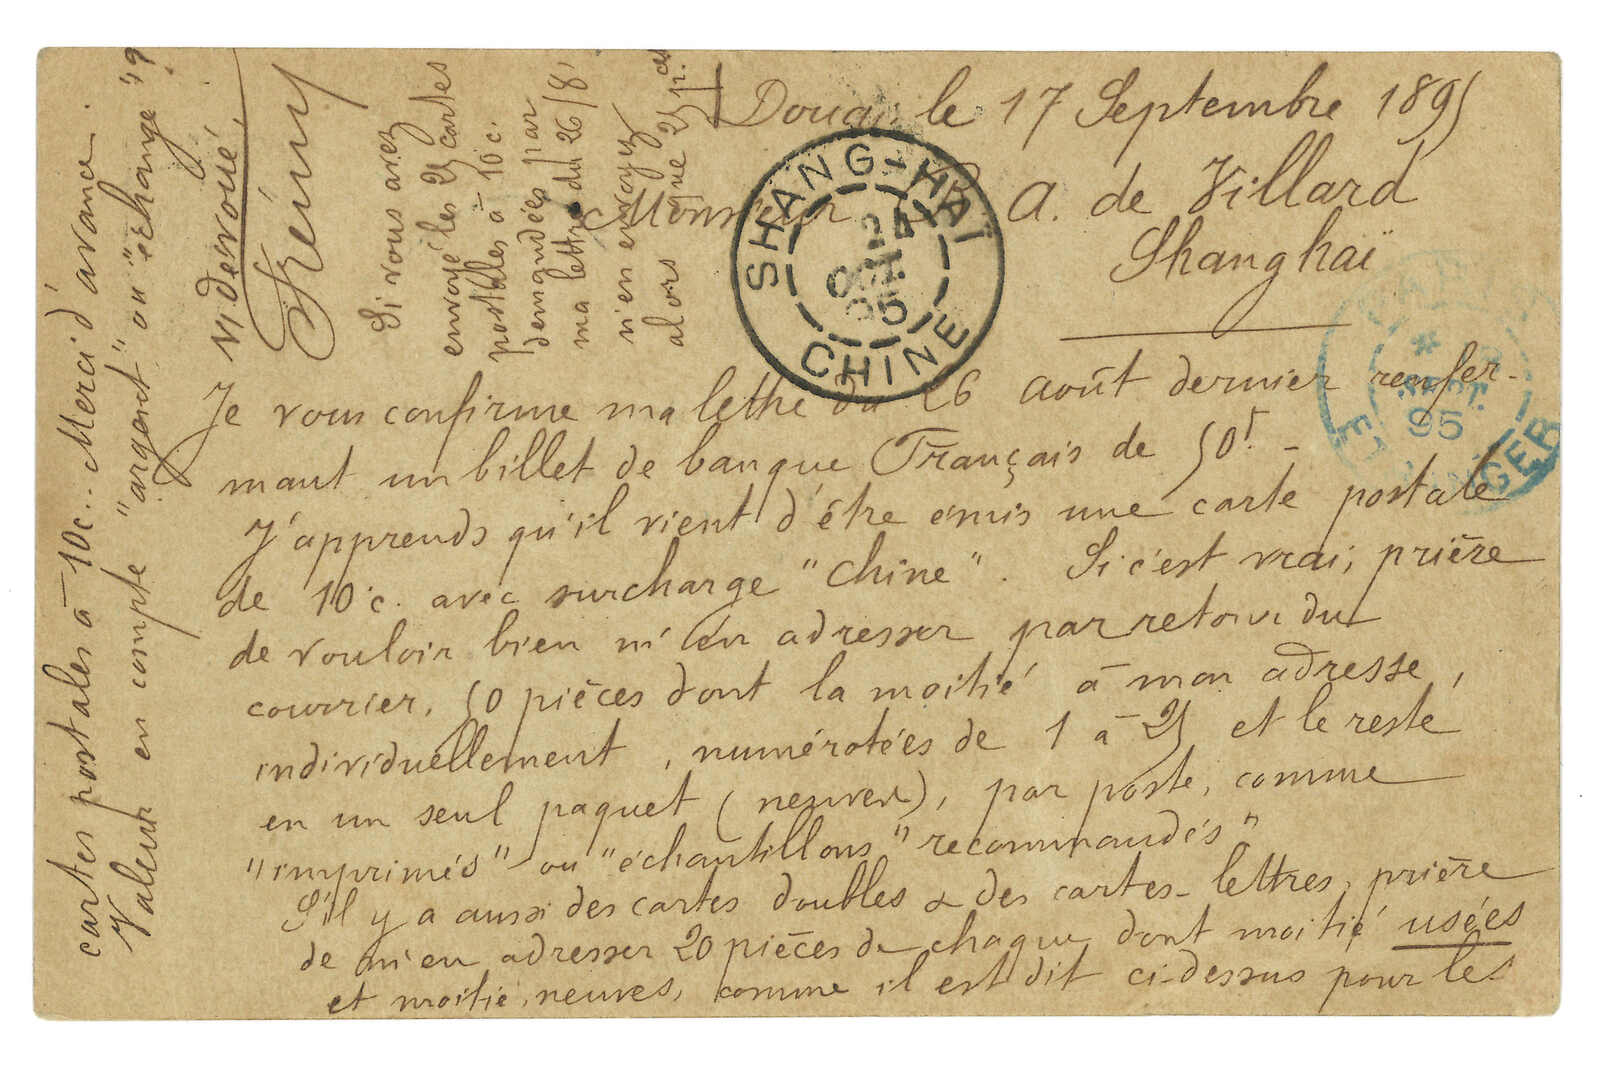 Douai le 17 Septembre 1895
Monsieur R. A. de Villard
Shanghaï
Je vous confirme ma lettre du 26 août dernier renfer-
mant un billet de banque Français de 50f. -
J'apprends qu'il vient d'être émis une carte postale
de 10 c. avec surcharge "Chine". Si c'est vrai, prière
de vouloir bien m'en adresser par retour du
courrier, 50 pièces dont la moitié à mon adresse,
individuellement, numérotées de 1 à 25 et le reste
en un seul paquet (neuves), par poste, comme
"imprimés" ou "échantillons" recommandés"
S'il y a aussi des cartes doubles & des cartes-lettres, prière
de m'en adresser 20 pièces de chaque dont moitié usées
et moitié neuves, comme il est dit ci-dessus pour les
cartes postales à 10c.. Merci d'avance.
Valeur en compte "argent" ou "échange"?
Vı dévoué,
Frémy
Si vous avez
envoyé les 25 cartes
postales à 10 c.
demandées par
ma lettre du 26/8,
n'en envoyez
alors que 25 p.ces
SHANG-HAI
24
OCT.
95
CHINE
SEPT.
95